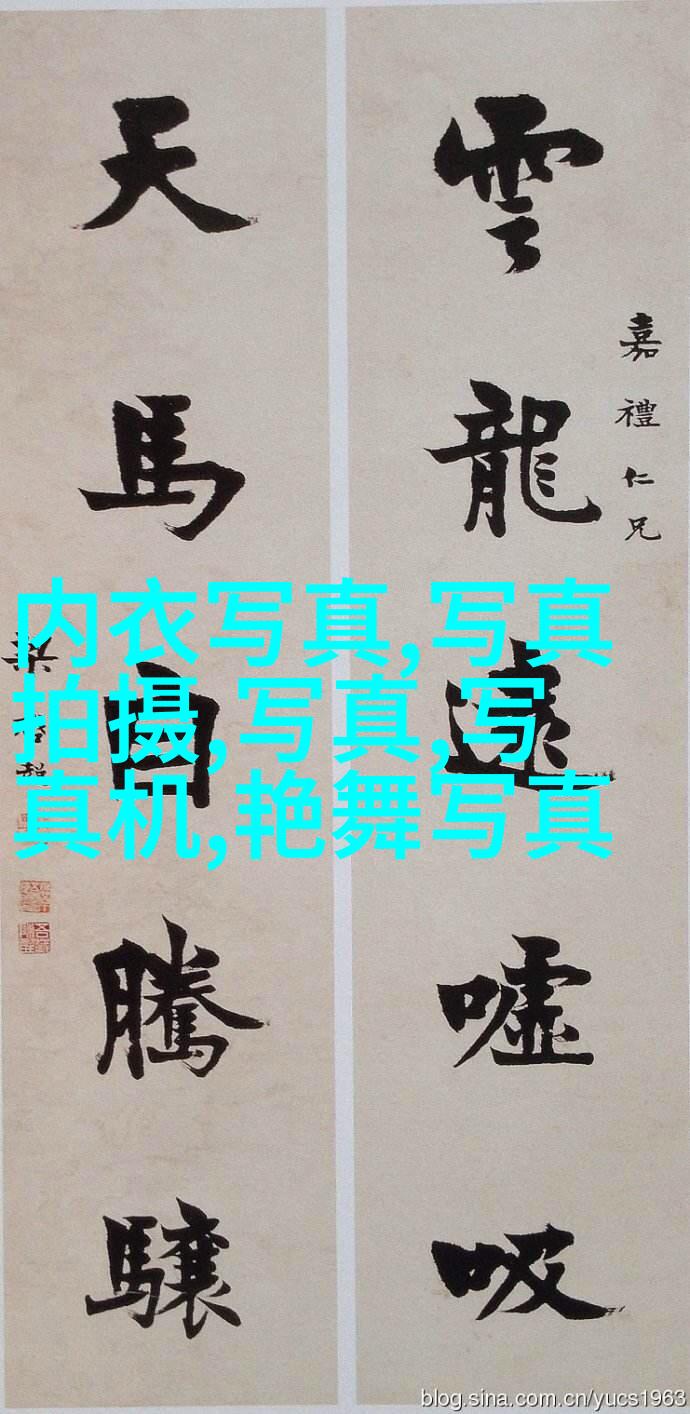 雲龍遠噓吸
嘉禮仁兄
天馬自騰驤
梁啟超
内衣写真,写真
拍摄,写真,写
真机,艳舞写真
blog.sina.com.cn/yucs1963